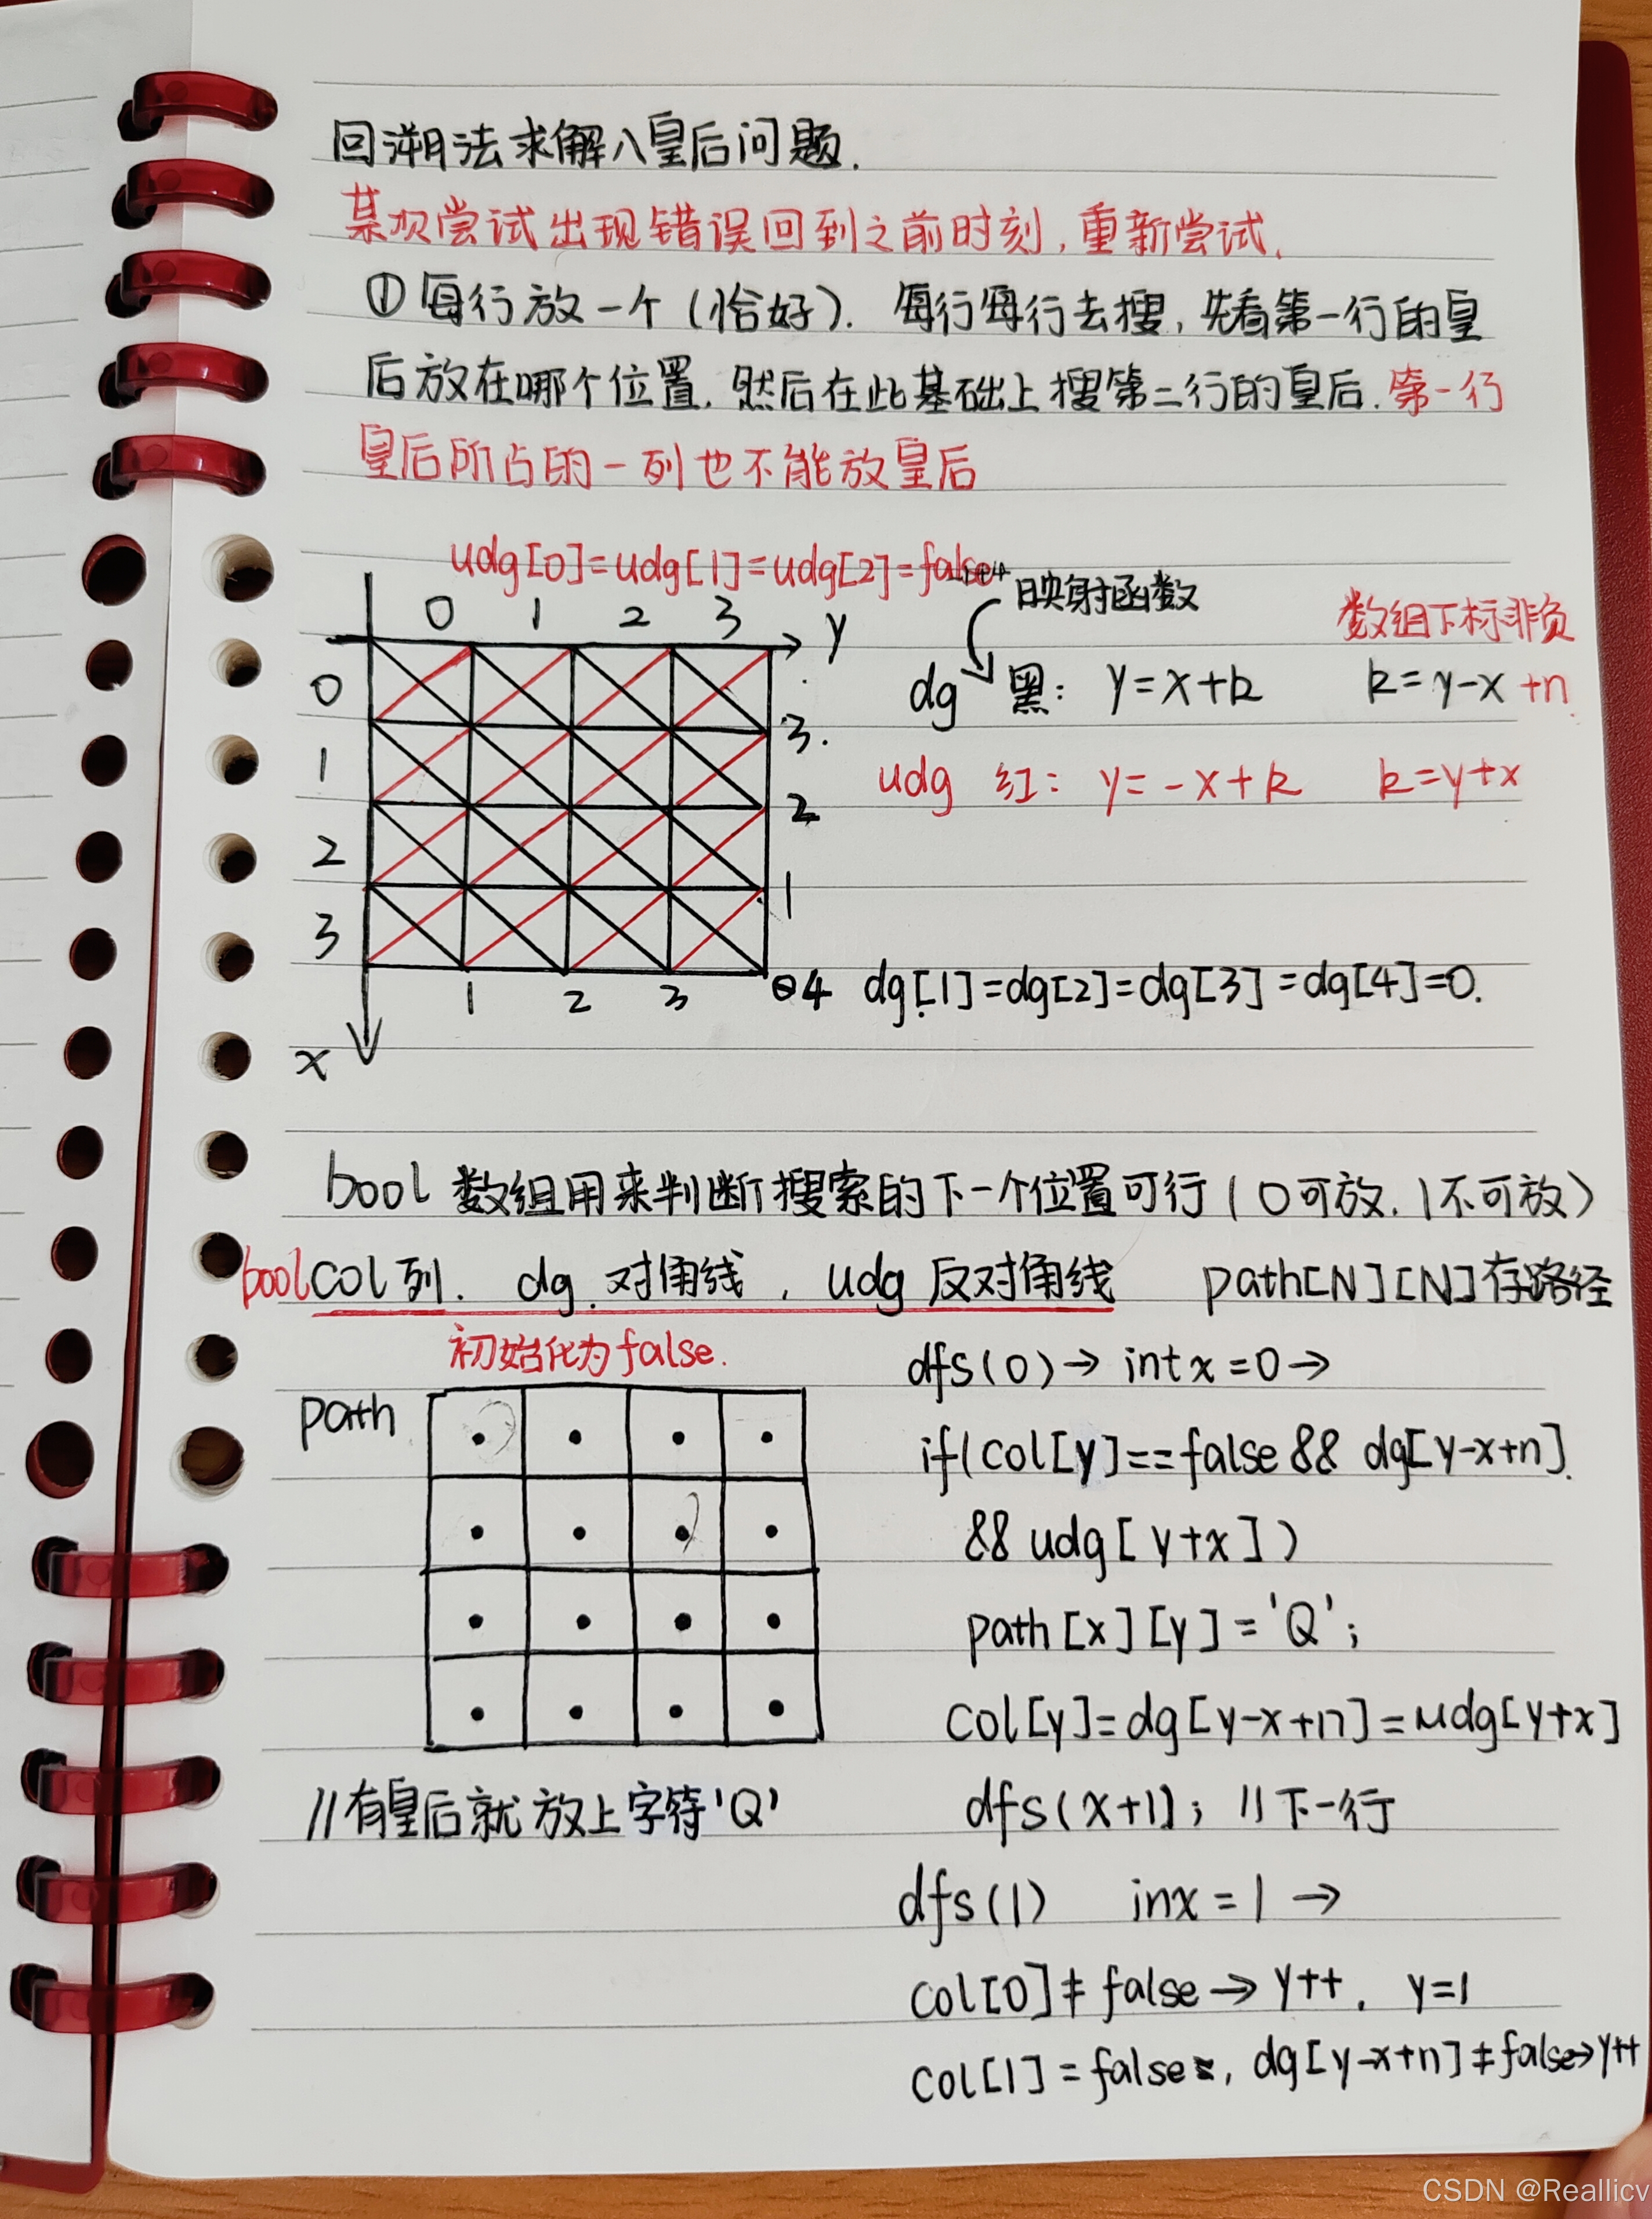 回溯法求解八皇后问题.
某次尝试出现错误回到之前时刻,重新尝试.
① 每行放一个(恰好). 每行每行去搜,先看第一行的皇
后放在哪个位置.然后在此基础上搜第二行的皇后.第一行
皇后所占的一列也不能放皇后
udg[0]=udg[1]=udg[2]=false
映射函数
数组下标非负
0 1 2 3 y
dg 黑: y=x+k k=y-x+n
0
3.
udg 红: y=-x+k k=y+x
1
2
2
1
3
1 2 3 4 dg[1]=dg[2]=dg[3]=dg[4]=0.
x
bool 数组用来判断搜索的下一个位置可行(0可放.1不可放)
bool col 列. dg.对角线, udg 反对角线 path[N][N]存路径
初始化为false.
dfs(0)→ int x=0→
path
if(col[y]==false && dg[y-x+n].
&& udg[y+x])
path[x][y]='Q';
col[y]=dg[y-x+n]=udg[y+x]
//有皇后就放上字符'Q'
dfs(x+1); //下一行
dfs(1) inx=1→
col[0]≠false→y++. y=1
col[1]=false, dg[y-x+n]≠false→y++
CSDN @Reallicv